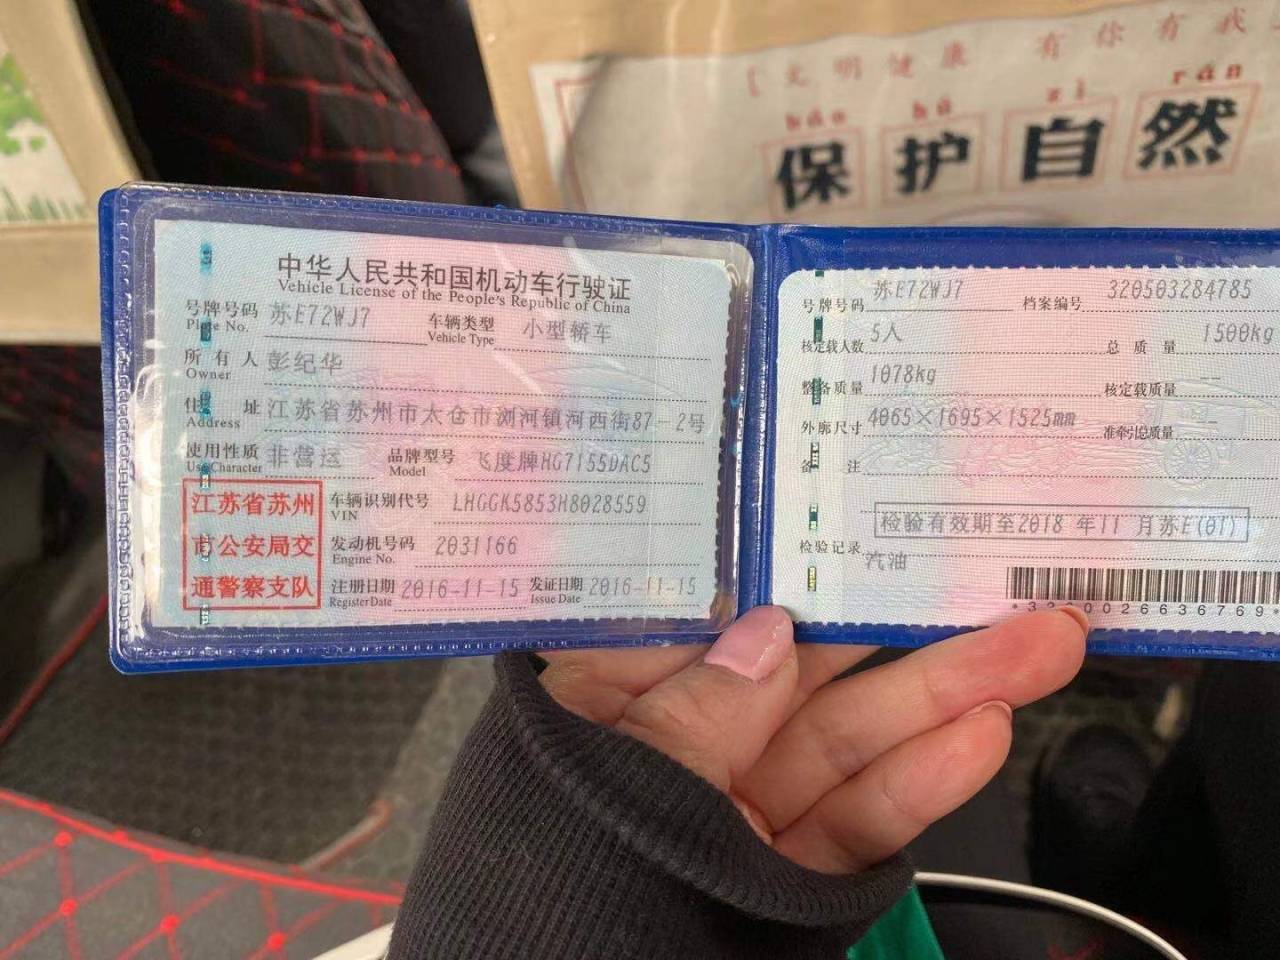 【文明健康 有你有我
bǎo hù zì rán
保护自然
中华人民共和国机动车行驶证
Vehicle License of the People's Republic of China
号牌号码 苏E72WJ7 车辆类型 小型轿车
Plate No. Vehicle Type
所有人 彭纪华
Owner
住址 江苏省苏州市太仓市浏河镇河西街87-2号
Address
使用性质 非营运 品牌型号 飞度牌HG7155DAC5
Use Character Model
江苏省苏州
市公安局交
通警察支队
车辆识别代号 LHGGK5853H8028559
VIN
发动机号码 2031166
Engine No.
注册日期 2016-11-15 发证日期 2016-11-15
Register Date Issue Date
号牌号码 苏E72WJ7 档案编号 320503284785
核定载人数 5人 总质量 1500kg
整备质量 1078kg 核定载质量 --
外廓尺寸 4065×1695×1525mm 准牵引总质量 --
备注
检验有效期至2018 年11 月苏E(01)
检验记录
汽油